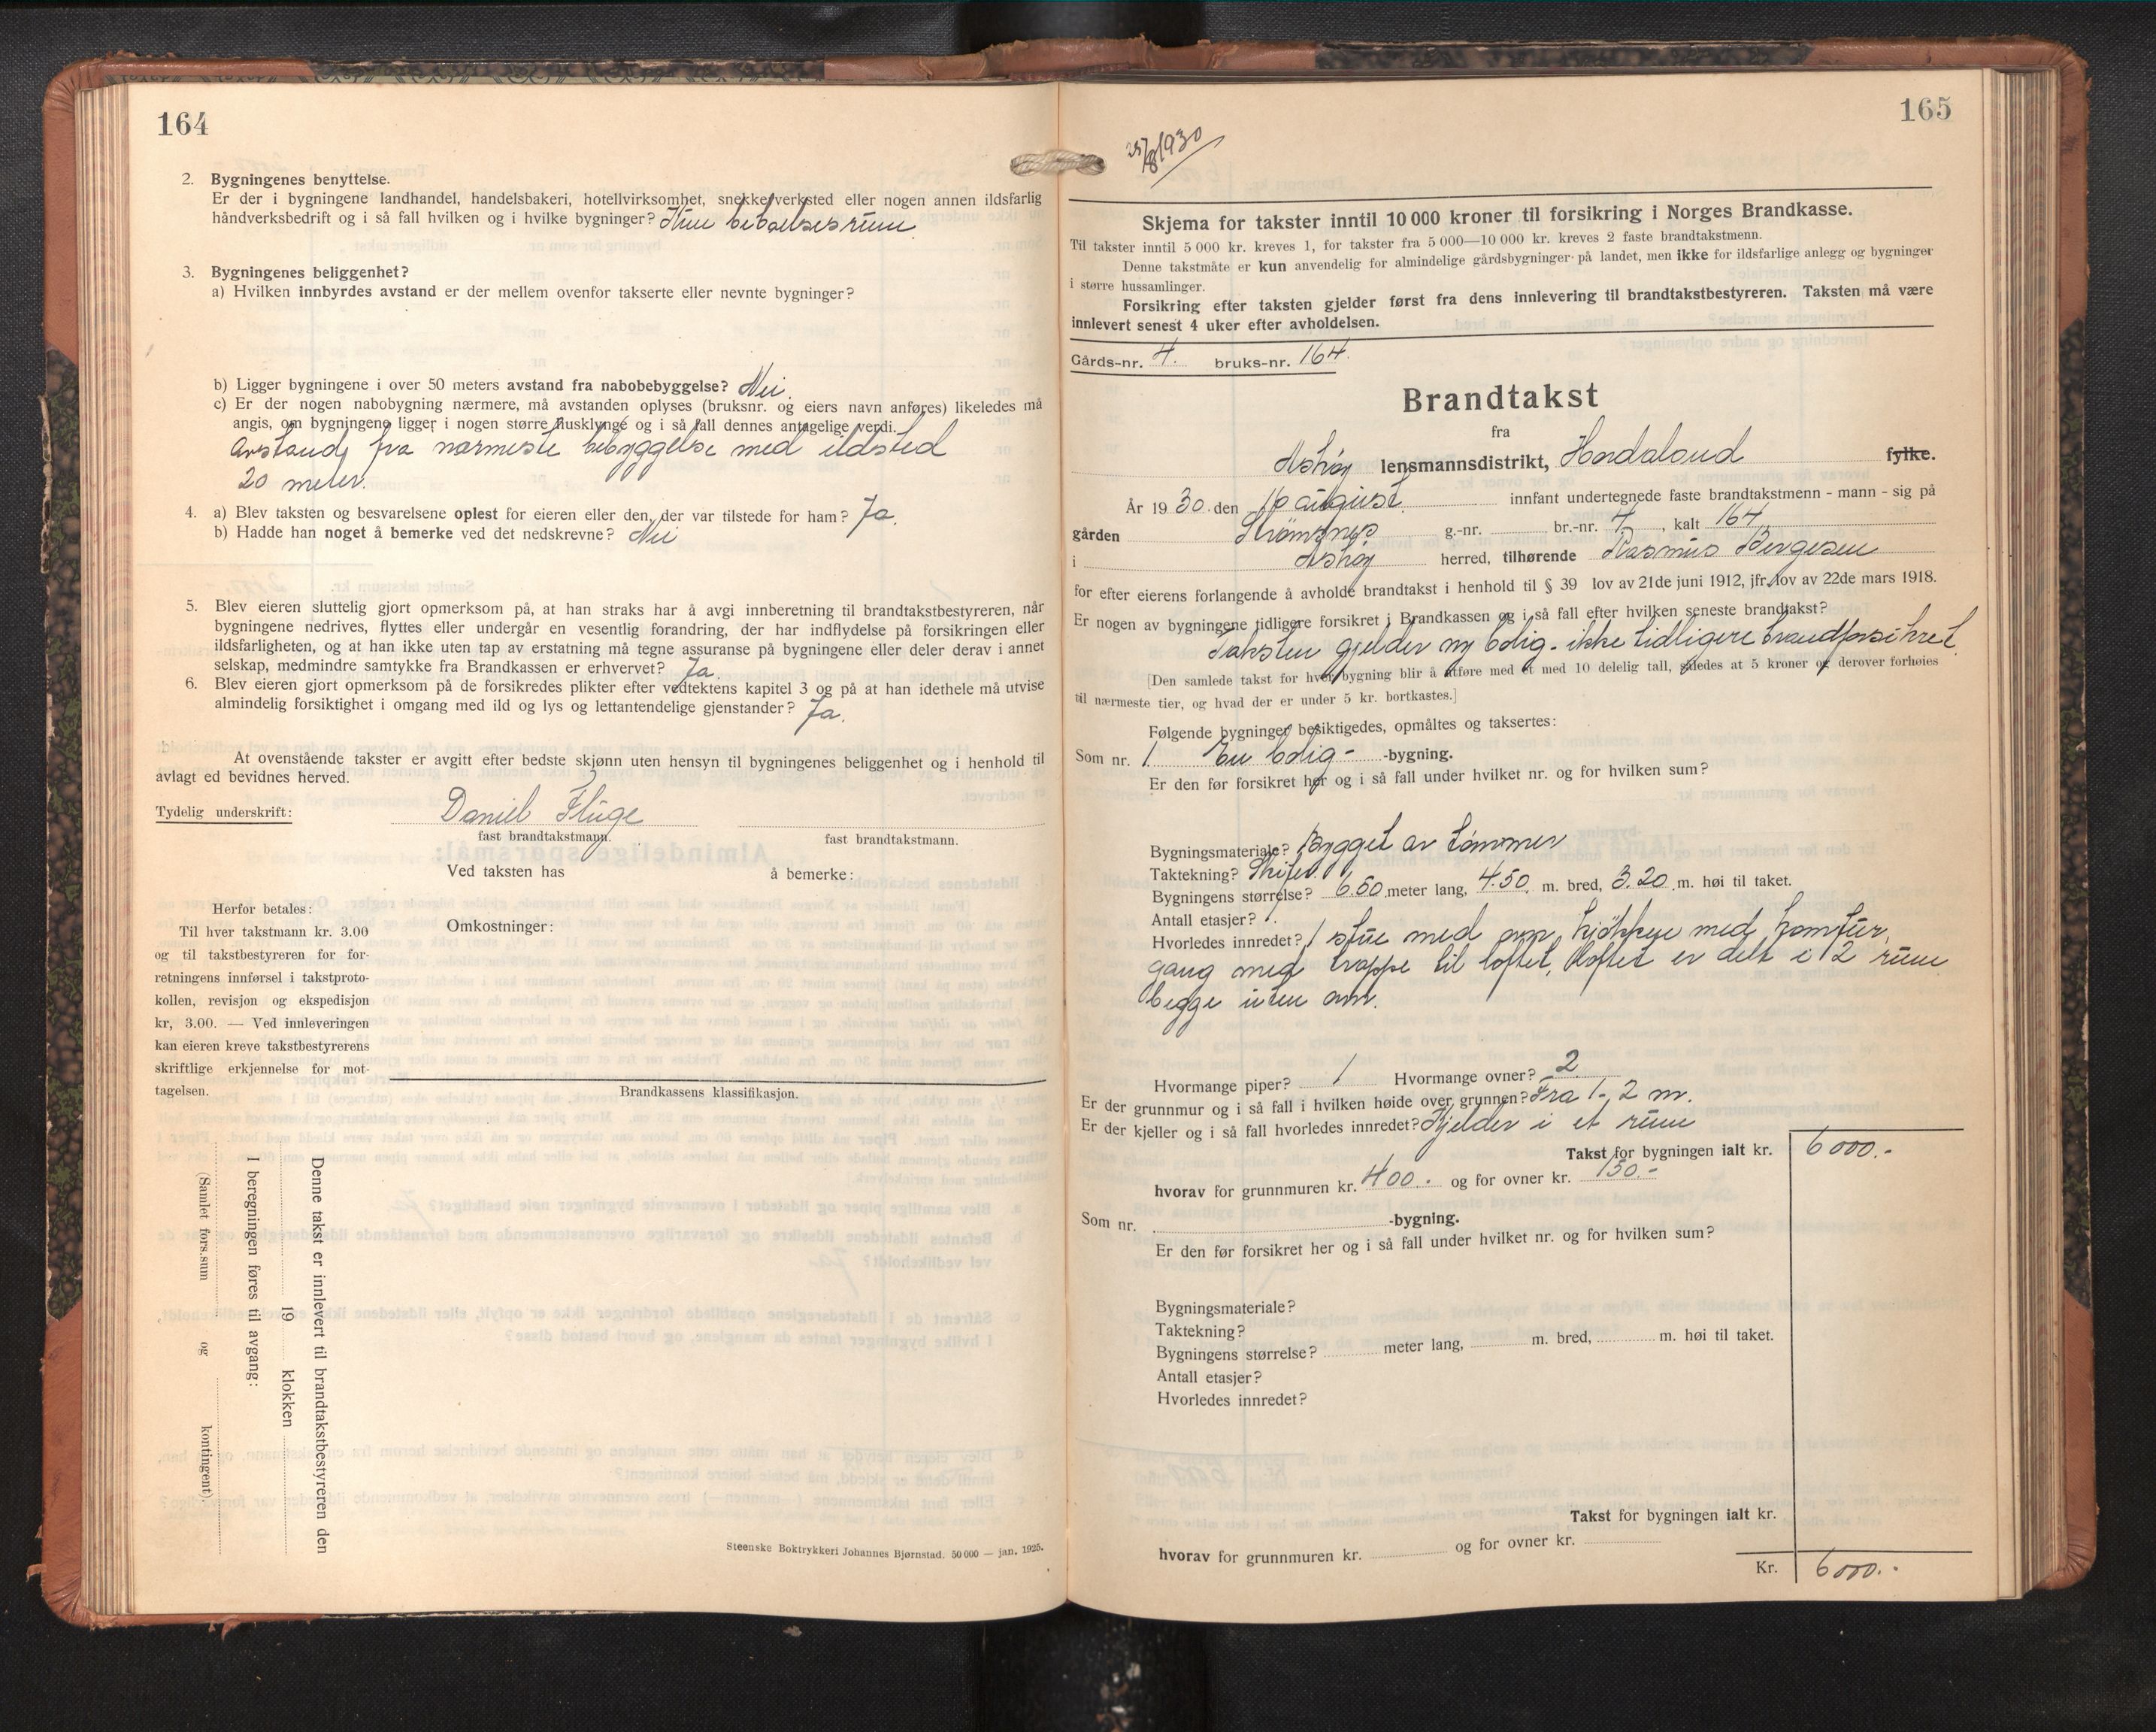 164
2. Bygningenes benyttelse.
Er der i bygningene landhandel, handelsbakeri, hotellvirksomhet, snekkerverksted eller nogen annen ildsfarlig
håndverksbedrift og i så fall hvilken og i hvilke bygninger? Kun beboelsesrum
3. Bygningenes beliggenhet?
a) Hvilken innbyrdes avstand er der mellem ovenfor takserte eller nevnte bygninger?
b) Ligger bygningene i over 50 meters avstand fra nabobebyggelse? Nei.
c) Er der nogen nabobygning nærmere, må avstanden oplyses (bruksnr. og eiers navn anføres) likeledes må
angis, om bygningene ligger i nogen større husklynge og i så fall dennes antagelige verdi.
Avstand fra nærmeste bebyggelse med ildsted
20 meter.
4. a) Blev taksten og besvarelsene oplest for eieren eller den, der var tilstede for ham? Ja.
b) Hadde han noget å bemerke ved det nedskrevne? Nei
5. Blev eieren sluttelig gjort opmerksom på, at han straks har å avgi innberetning til brandtakstbestyreren, når
bygningene nedrives, flyttes eller undergår en vesentlig forandring, der har indflydelse på forsikringen eller
ildsfarligheten, og at han ikke uten tap av erstatning må tegne assuranse på bygningene eller deler derav i annet
selskap, medmindre samtykke fra Brandkassen er erhvervet? Ja.
6. Blev eieren gjort opmerksom på de forsikredes plikter efter vedtektens kapitel 3 og på at han idethele må utvise
almindelig forsiktighet i omgang med ild og lys og lettantendelige gjenstander? Ja.
At ovenstående takster er avgitt efter bedste skjønn uten hensyn til bygningenes beliggenhet og i henhold til
avlagt ed bevidnes herved.
Tydelig underskrift: Daniel Fluge
fast brandtakstmann. fast brandtakstmann.
Ved taksten has å bemerke:
Herfor betales:
Til hver takstmann kr. 3.00
og til takstbestyreren for for-
retningens innførsel i takstproto-
kollen, revisjon og ekspedisjon
kr, 3.00. — Ved innleveringen
kan eieren kreve takstbestyrerens
skriftlige erkjennelse for mot-
tagelsen.
Omkostninger:
Brandkassens klassifikasjon.
Denne takst er innlevert til brandtakstbestyreren den
19 klokken
I beregningen føres til avgang:
(Samlet fors.sum og kontingent)
Steenske Boktrykkeri Johannes Bjørnstad. 50 000 — jan. 1925.
165
25/8 1930
Skjema for takster inntil 10 000 kroner til forsikring i Norges Brandkasse.
Til takster inntil 5 000 kr. kreves 1, for takster fra 5 000—10 000 kr. kreves 2 faste brandtakstmenn.
Denne takstmåte er kun anvendelig for almindelige gårdsbygninger på landet, men ikke for ildsfarlige anlegg og bygninger
i større hussamlinger.
Forsikring efter taksten gjelder først fra dens innlevering til brandtakstbestyreren. Taksten må være
innlevert senest 4 uker efter avholdelsen.
Gårds-nr. 4. bruks-nr. 164.
Brandtakst
fra
Askøy lensmannsdistrikt, Hordaland fylke.
År 1930 den 16 august innfant undertegnede faste brandtakstmenn - mann - sig på
gården Strømsnes g.-nr. br.-nr. 4, kalt 164
i Askøy herred, tilhørende Rasmus Bergesen
for efter eierens forlangende å avholde brandtakst i henhold til § 39 lov av 21de juni 1912, jfr. lov av 22de mars 1918.
Er nogen av bygningene tidligere forsikret i Brandkassen og i så fall efter hvilken seneste brandtakst?
Taksten gjelder ny bolig - ikke tidligere brandforsikret.
[Den samlede takst for hver bygning blir å utføre med et med 10 delelig tall, således at 5 kroner og derover forhøies
til nærmeste tier, og hvad der er under 5 kr. bortkastes.]
Følgende bygninger besiktigedes, opmåltes og taksertes:
Som nr. 1 En bolig- -bygning.
Er den før forsikret her og i så fall under hvilket nr. og for hvilken sum?
Bygningsmateriale? Bygget av tømmer
Taktekning? Skifer.
Bygningens størrelse? 6.50 meter lang, 4.50 m. bred, 3.20 m. høi til taket.
Antall etasjer? 1.
Hvorledes innredet? 1 stue med ovn, kjøkken med komfur,
gang med trappe til loftet, Loftet er delt i 2 rum
begge uten ovn.
Hvormange piper? 1 Hvormange ovner? 2
Er der grunnmur og i så fall i hvilken høide over grunnen? Fra 1-2 m.
Er der kjeller og i så fall hvorledes innredet? Kjelder i et rum
Takst for bygningen ialt kr. 6000.-
hvorav for grunnmuren kr. 400.- og for ovner kr. 150.-
Som nr. -bygning.
Er den før forsikret her og i så fall under hvilket nr. og for hvilken sum?
Bygningsmateriale?
Taktekning?
Bygningens størrelse? meter lang, m. bred, m. høi til taket.
Antall etasjer?
Hvorledes innredet?
Takst for bygningen ialt kr.
hvorav for grunnmuren kr. og for ovner kr.
Kr. 6000.-